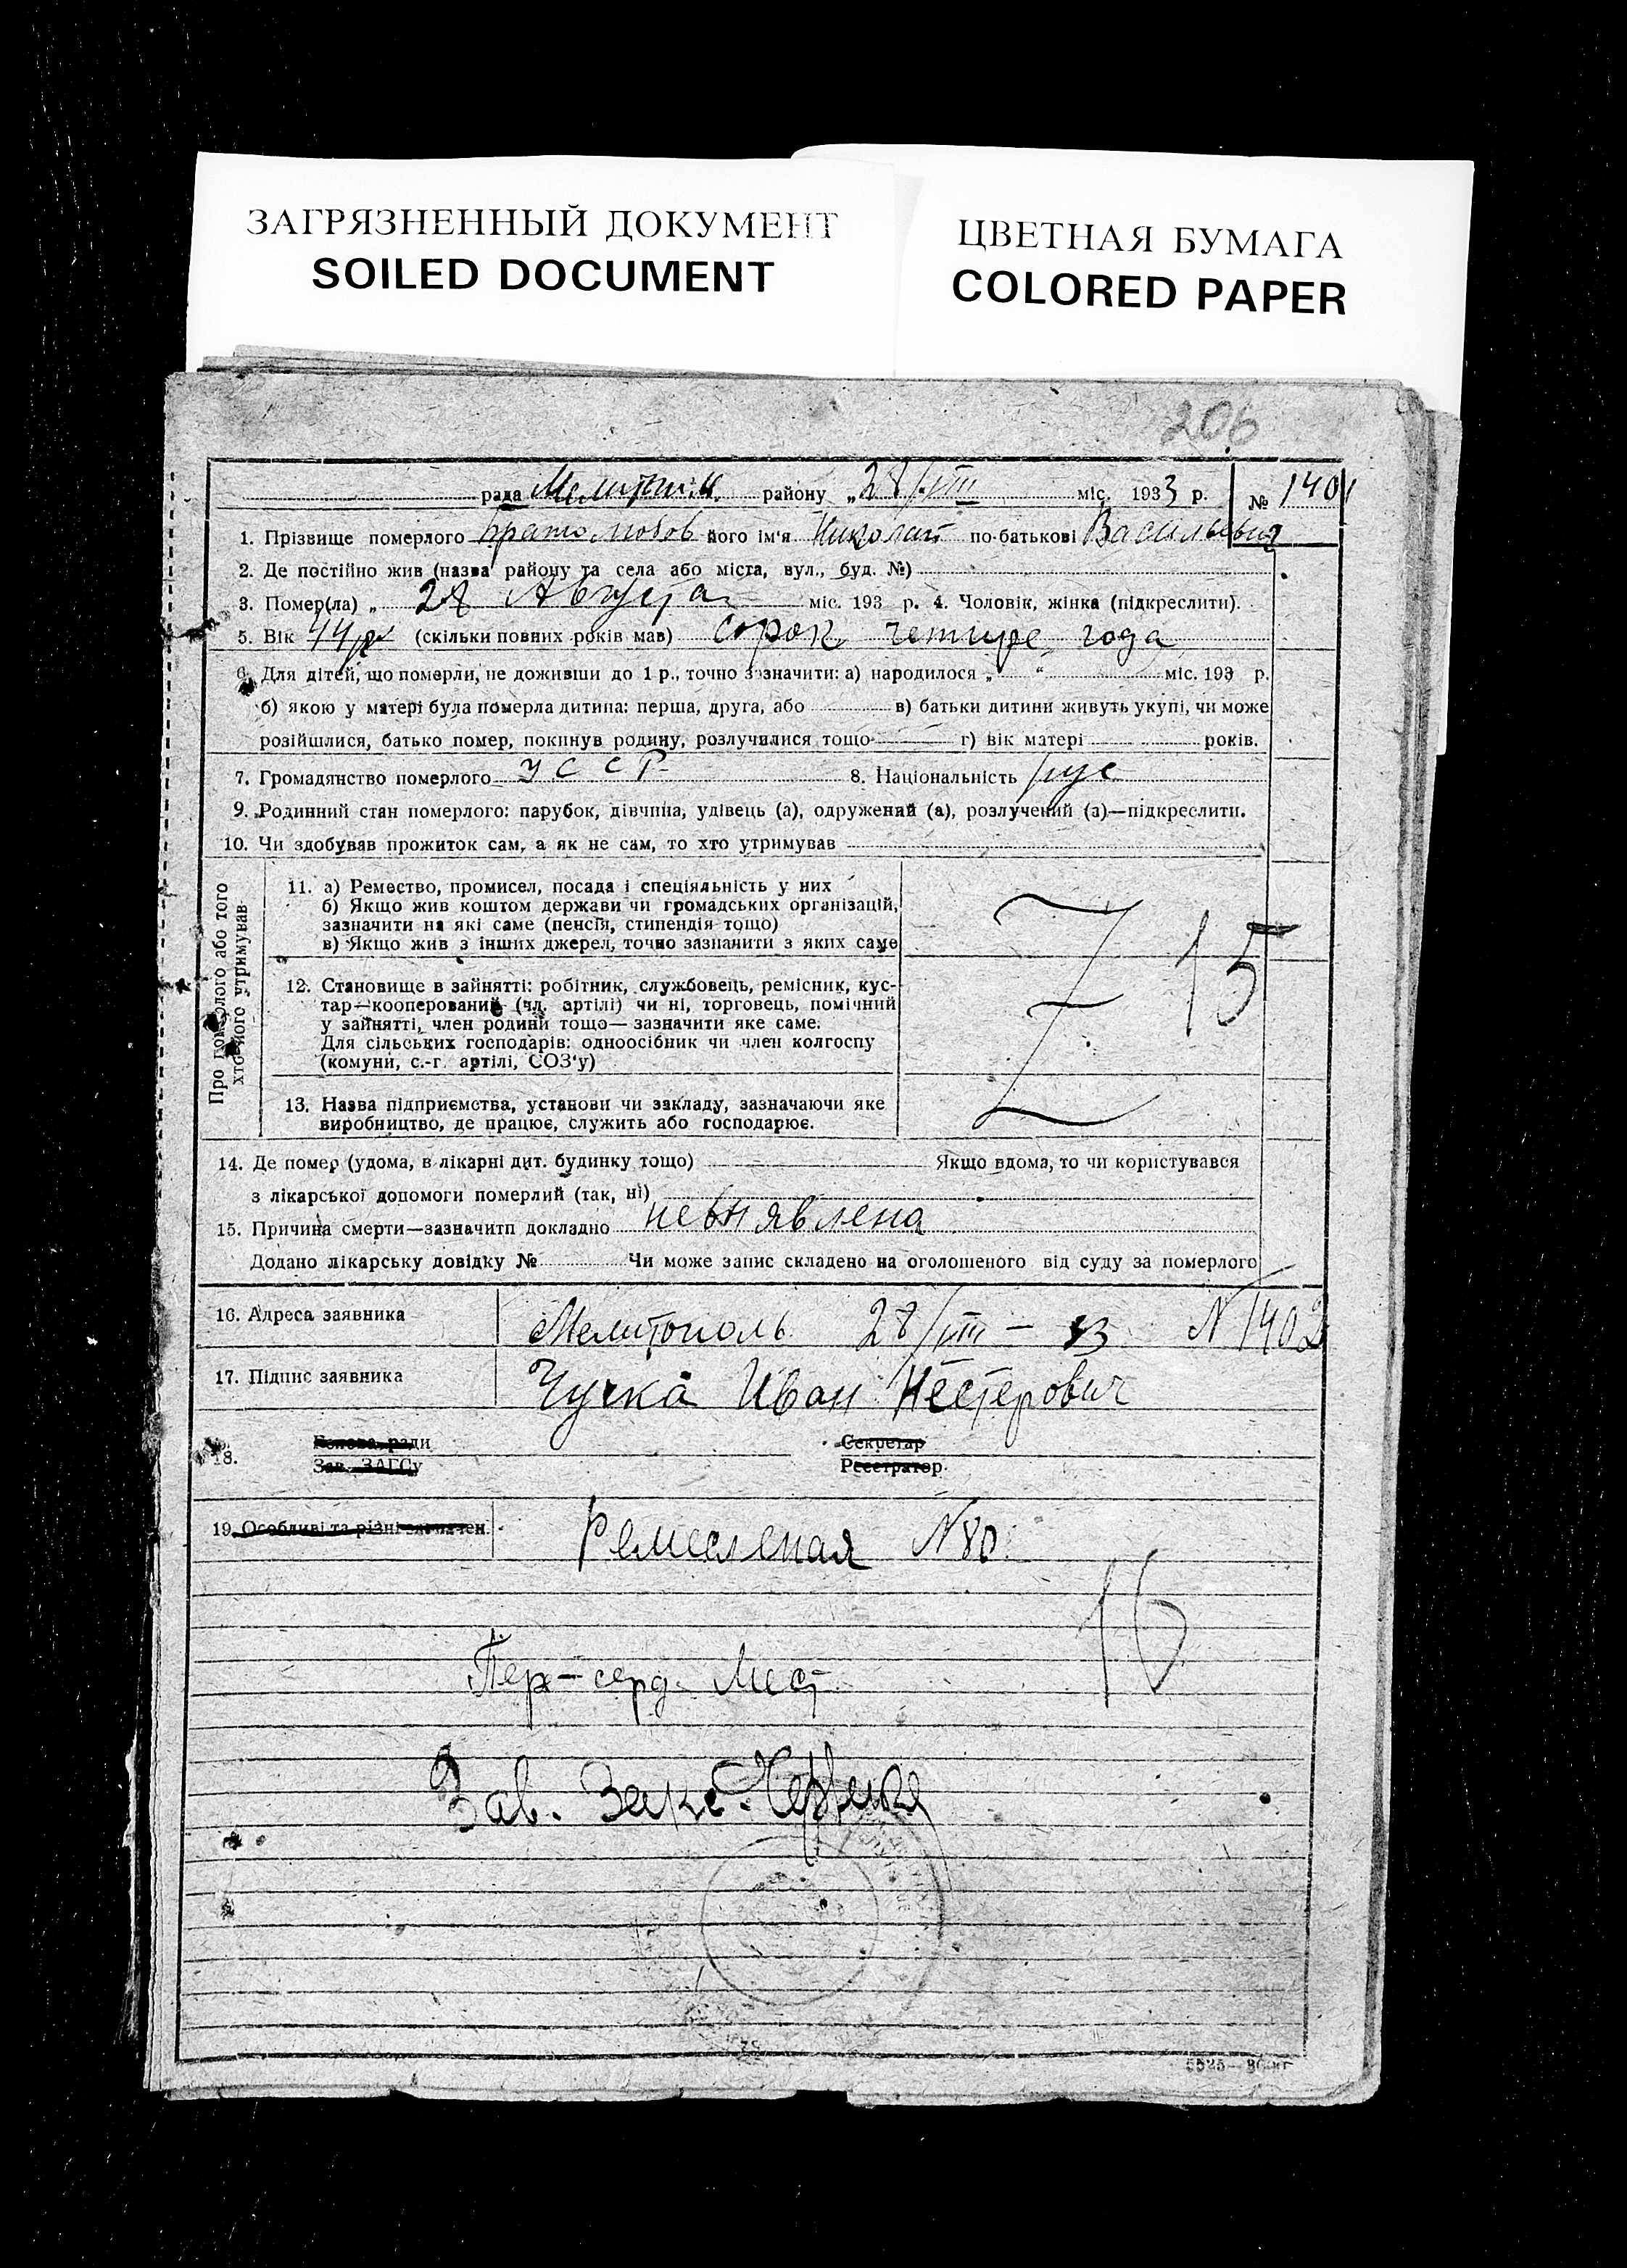 ЗАГРЯЗНЕННЫЙ ДОКУМЕНТ
SOILED DOCUMENT
ЦВЕТНАЯ БУМАГА
COLORED PAPER
206
рада Мелитп. м. району „28/VIII міс. 1933 р. № 1401
1. Прізвище померлого Братолюбов його ім'я Николай по-батькові Васильевич
2. Де постійно жив (назва району та села або міста, вул., буд. №)
3. Помер(ла) „ 28 Августа міс. 193 р. 4. Чоловік, жінка (підкреслити).
5. Вік 44 (скільки повних років мав) сорок четыре года
6. Для дітей, що померли, не доживши до 1 р., точно зазначити: а) народилося „ “ міс. 193 р.
б) якою у матері була померла дитина: перша, друга, або в) батьки дитини живуть укупі, чи може
розійшлися, батько помер, покинув родину, розлучилися тощо г) вік матері років.
7. Громадянство померлого УССР 8. Національність рус
9. Родинний стан померлого: парубок, дівчина, удівець (а), одружений (а), розлучений (а)—підкреслити.
10. Чи здобував прожиток сам, а як не сам, то хто утримував
Про померлого або того
хто його утримував
11. а) Ремество, промисел, посада і спеціяльність у них
б) Якщо жив коштом держави чи громадських організацій,
зазначити на які саме (пенсія, стипендія тощо)
в) Якщо жив з інших джерел, точно зазначити з яких саме
15
12. Становище в зайнятті: робітник, службовець, ремісник, кус-
тар—кооперований (чл. артілі) чи ні, торговець, помічний
у зайнятті, член родини тощо— зазначити яке саме.
Для сільських господарів: одноосібник чи член колгоспу
(комуни, с.-г. артілі, СОЗ'у)
13. Назва підприємства, установи чи закладу, зазначаючи яке
виробництво, де працює, служить або господарює.
14. Де помер (удома, в лікарні дит. будинку тощо) Якщо вдома, то чи користувався
з лікарської допомоги померлий (так, ні)
15. Причина смерти—зазначити докладно невыявлена
Додано лікарську довідку № Чи може запис складено на оголошеного від суду за померлого
16. Адреса заявника Мелитополь 28/VIII – 33 N 1402
17. Підпис заявника Чучка Иван Нестерович
18. Голова ради Секретар
Зав. ЗАГСу Реєстратор.
19. Особливі та різні зазначен. Ремесленая N 80.
16
Пер-серд. Мест
Зав. Загс.
5525—30 кг